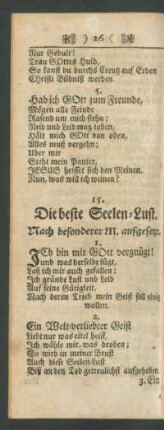 ) 26 (
Nur Gedult!
Trau GOttes Huld,
So kanst du durchs Creutz auf Erden
Christi Bildniß werden.
5.
Hab ich GOtt zum Freunde,
Mögen alle Feinde
Rasend um mich stehn:
Neid und Leid mag toben,
Hält mich GOtt von oben,
Alles muß vergehn;
Uber mir
Steht mein Panier,
JESUS heisset sich den Meinen.
Nun, was will ich weinen?
15.
Die beste Seelen-Lust.
Nach besonderer M. aufgesetz.
1.
ICh bin mit GOtt vergnügt!
und was derselbe fügt,
Laß ich mir auch gefallen:
Ich gründe Lust und Leid
Auf seine Gütigkeit,
Nach deren Trieb mein Geist soll einig
wallen.
2.
Ein Welt-verliebter Geist
Liebt nur was eitel heist,
Ich wähle mir, was droben;
So wird in meiner Brust
Auch diese Seelen-Lust
Biß an den Tod getreulichst aufgehoben
3. Ein